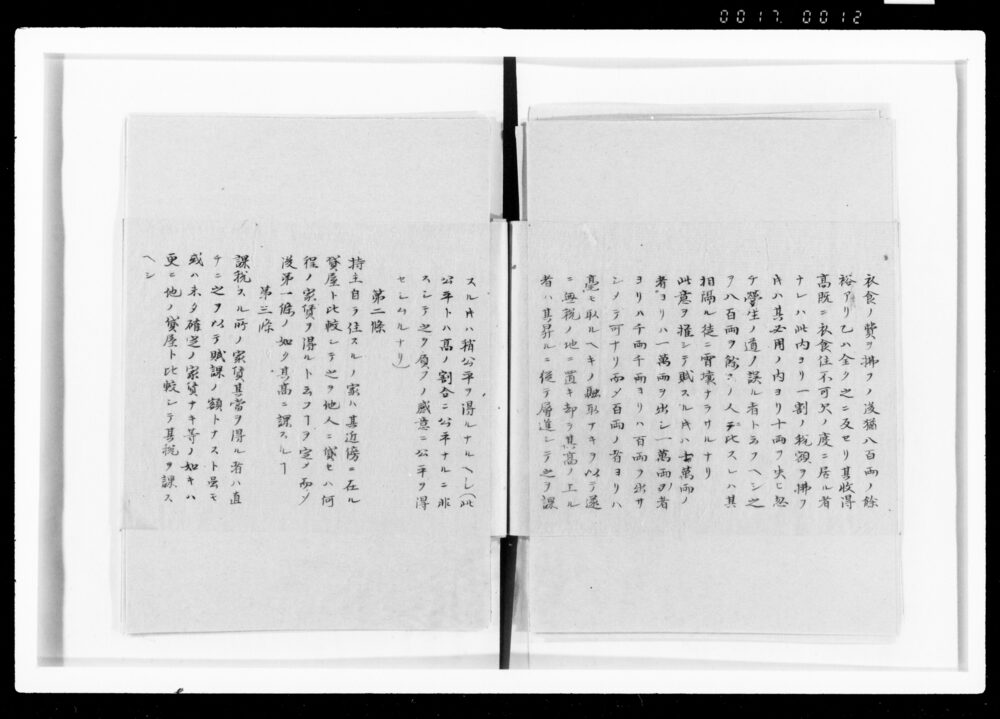 0017 0012
衣食ノ費ヲ拂フノ後猶八百両ノ餘
裕アリ乙ハ全ク之ニ反セリ其收得
高既ニ衣食住不可欠ノ度ニ居ル者
ナレハ此内ヨリ一割ノ税額ヲ拂フ
𪜈ハ其必用ノ内ヨリ十両ヲ失ヒ忽
チ營生ノ道ノ誤ル者ト云フヘシ之
ヲ八百両ヲ餘スノ人ニ比スレハ其
相隔ル徒ニ霄壌ナラサルナリ
此意ヲ推シテ賦スル𪜈ハ十萬両ノ
者ヨリハ一萬両ヲ出シ一萬両ノ者
ヨリハ千両千両ヨリハ百両ヲ出サ
シメテ可ナリ而メ百両ノ者ヨリハ
毫モ取ルヘキノ融取ナキヲ以テ還
ニ無税ノ地ニ置キ却テ其高ノ上ル
者ハ其昇ルニ從テ層進シテ之ヲ課
スル𪜈ハ稍公平ヲ得ルナルヘシ(此
公平トハ高ノ割合ニ公平ナルニ非
スシテ之ヲ負フノ感意ニ公平ヲ得
セシムルナリ)
第二條
持主自ラ住スルノ家ハ其近傍ニ在ル
貸屋ト比較シテ之ヲ他人ニ貸セハ何
程ノ家賃ヲ得ルト云フヿヲ定メ而メ
後第一條ノ如ク其高ニ課スルヿ
第三條
課税スル所ノ家賃其當ヲ得ル者ハ直
チニ之ヲ以テ賦課ノ額トナスト雖モ
或ハ未タ確定ノ家賃ナキ等ノ如キハ
更ニ他ノ貸屋ト比較シテ其税ヲ課ス
ヘシ